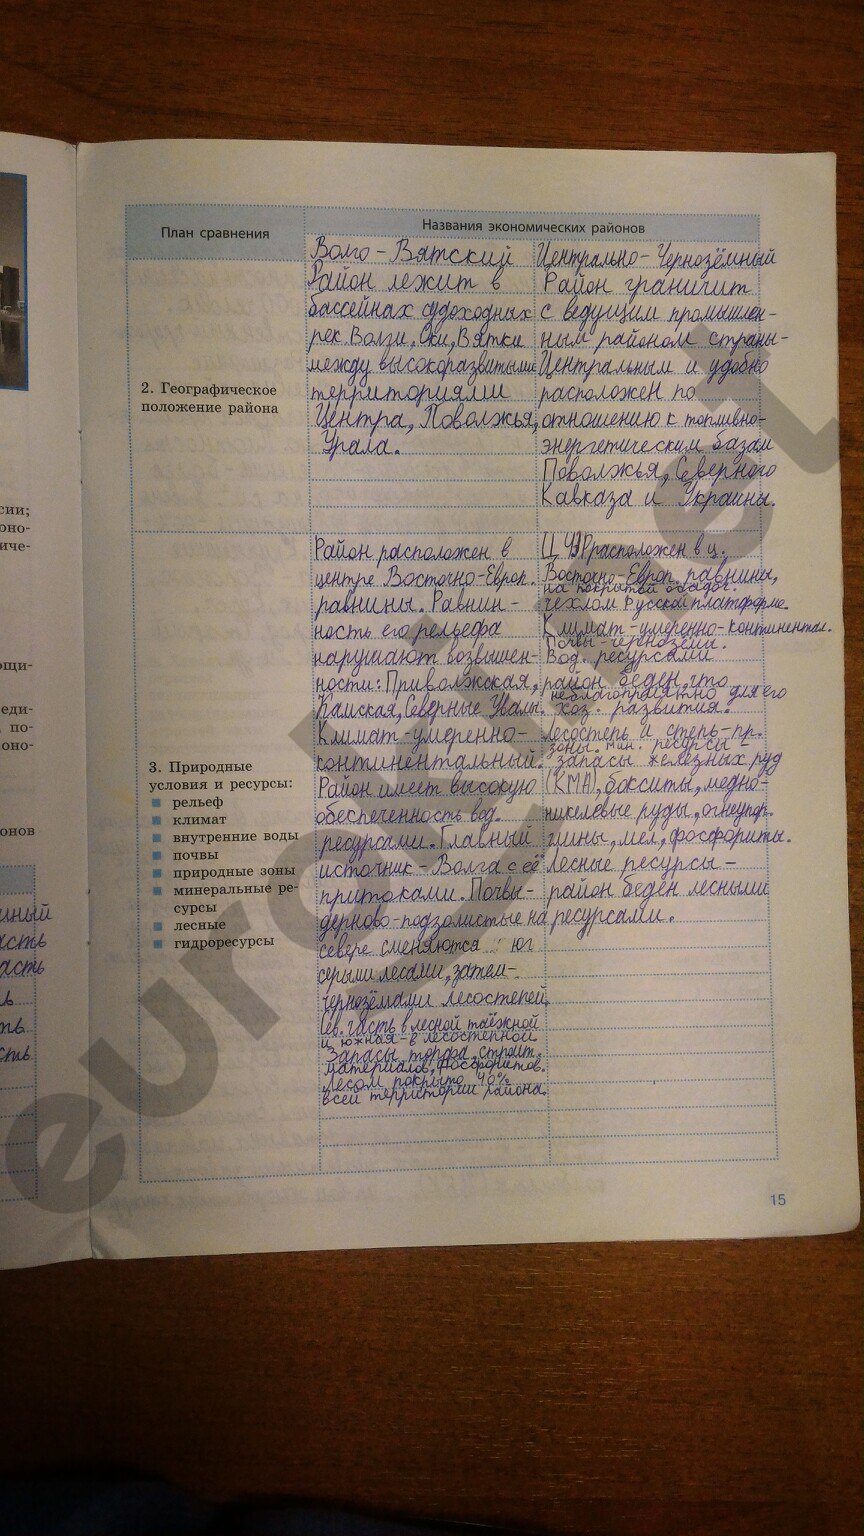 сии;
оно-
иче-
ощи-
еди-
по-
оно-
онов
асть
асть
сть
План сравнения
Названия экономических районов
Волго-Вятский
Центрально-Чернозёмный
2. Географическое
положение района
Район лежит в
бассейнах судоходных
рек Волги, Оки, Вятки
между высокоразвитыми
территориями
Центра, Поволжья,
Урала.
Район граничит
с ведущим промышлен-
ным районом страны-
Центральным и удобно
расположен по
отношению к топливно-
энергетическим базам
Поволжья, Северного
Кавказа и Украины.
3. Природные
условия и ресурсы:
рельеф
климат
внутренние воды
почвы
природные зоны
минеральные ре-
сурсы
лесные
гидроресурсы
Район расположен в
центре Восточно-Европ.
равнины. Равнин-
ность его рельефа
нарушают возвышен-
ности: Приволжская,
Камская, Северные Увалы.
Климат-умеренно-
континентальный.
Район имеет высокую
обеспеченность вод.
ресурсами. Главный
источник - Волга с её
притоками. Почвы-
дерново-подзолистые на
севере сменяются юг
серыми лесами, затем-
чернозёмами лесостепей.
Сев. часть в лесной таёжной
и южная-в лесостепной
Запасы торфа, строит.
материалов, фосфоритов.
Лесом покрыто 40%
всей территории района.
ЦЧЭР расположен в ц.
Восточно-Европ. равнины,
на покрытой осадоч.
чехлом Русской платформе.
Климат-умеренно-континентал.
Почвы-чернозёмы.
Вод. ресурсами
район беден, что
неблагоприятно для его
хоз. развития.
лесостепь и степь-пр.
зоны. Мин. ресурсы -
запасы железных руд
(КМА), бокситы, медно-
никелевые руды, огнеупор.
глины, мел, фосфориты.
Лесные ресурсы -
район беден лесными
ресурсами.
15
euroki.net